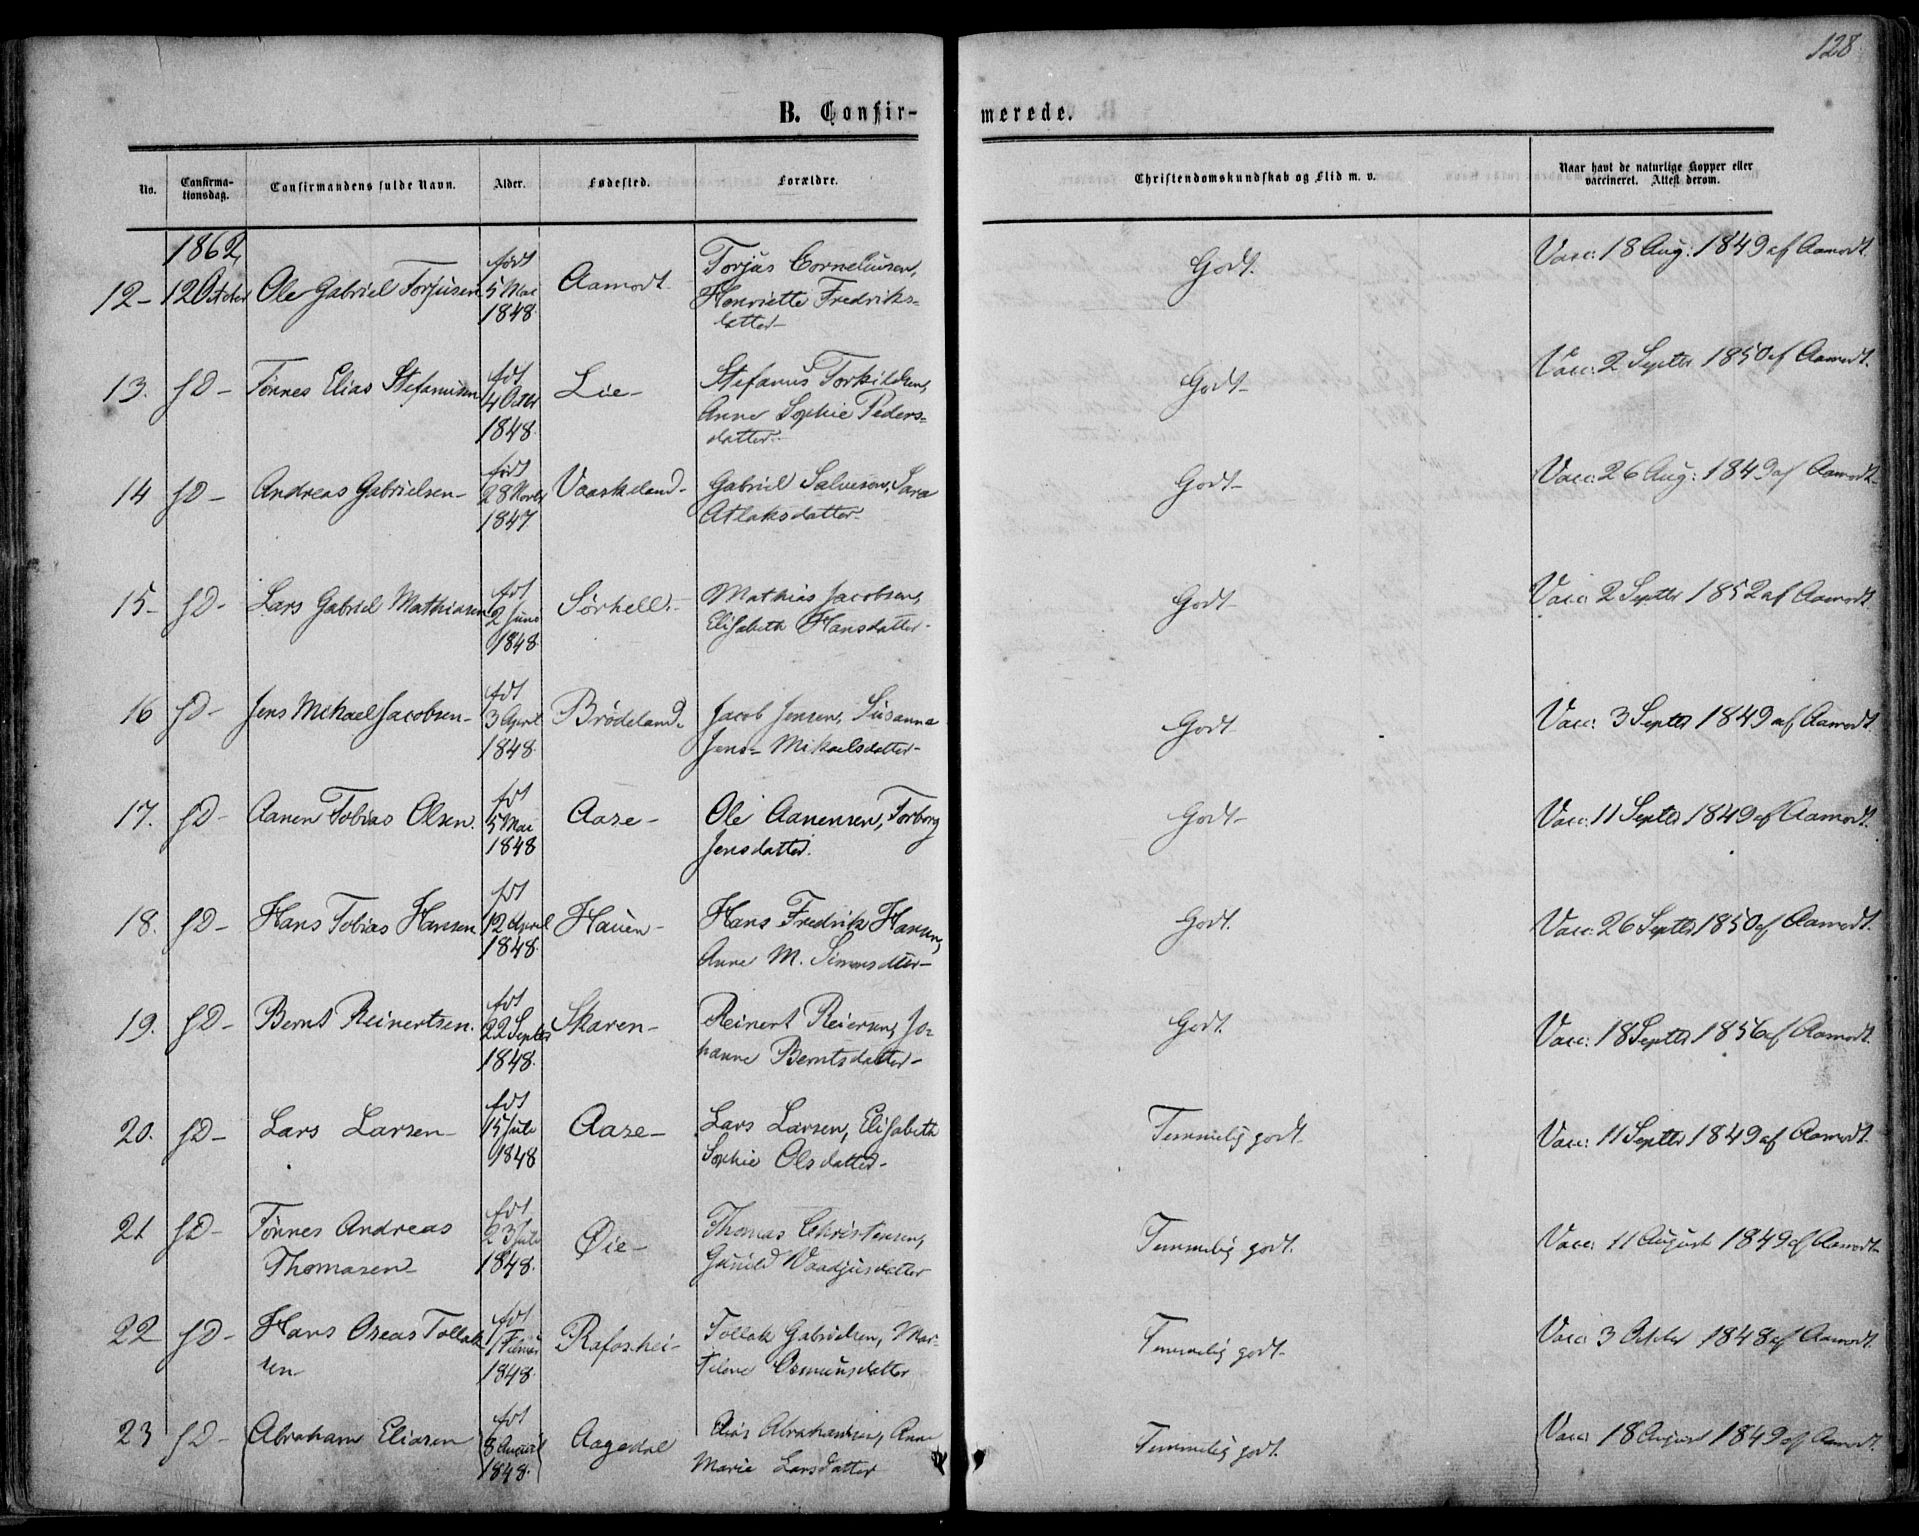 128
B. Confir-
merede.
No.
Confirma-
tionsdag.
Confirmandens fulde Navn.
Alder.
Fødested.
Forældre.
Christendomskundskab og Flid m. v.
Naar havt de naturlige Kopper eller
vaccineret. Attest derom.
1862
født
Torjus Corneliusen,
12- 12 October Ole Gabriel Torjusen 5 Mai Aamodt. Henriette Fredriks- Godt. Vacc: 18 Aug: 1849 af Aamodt.
1848. datter-
fdt Stefanus Torkildsen,
13. fD- Tønnes Elias Stefanusen 4 Octbr Lie- Anne Sophie Peders- Godt- Vacc: 2 Septbr 1850 af Aamodt.
1848. datter.
født
14 fD- Andreas Gabrielsen- 28 Novbr Vaaskeland- Gabriel Salvesen, Sara Godt- Vacc: 26 Aug: 1849 af Aamodt-
1847 Atlaksdatter-
fdt Mathias Jacobsen,
15- fD- Lars Gabriel Mathiasen 2 Juni Sørhelle.- Elisabeth Hansdatter- Godt- Vacc: 2 Septbr 1852 af Aamodt.
1848.
fdt
16 fD- Jens Mikael Jacobsen- 3 April Brødeland. Jacob Jensen, Susanna Godt- Vacc: 3 Septbr 1849 af Aamodt.
1848. Jens- Mikaelsdatter-
fdt
17. fD- Aanen Tobias Olsen. 5 Mai Aase- Ole Aanensen, Torborg Godt- Vacc: 11 Septbr 1849 af Aamodt.
1848 Jensdatter.
fdt
18. fD- Hans Tobias Hansen 12 April Hauen- Hans Fredrik Hansen, Godt. Vacc: 26 Septbr 1850 af Aamodt.
1848. Anne M. Simonsdtter-
fdt
19. fD- Bernt Reinertsen. 22 Septbr Skaren- Reinert Reiersen, Jo- Godt. Vacc: 18 Septbr 1856 af Aamodt.
1848. hanne Berntsdatter-
fdt
20. fD- Lars Larsen- 15 Juli Aase- Lars Larsen, Elisabeth Temmelig godt. Vacc: 11 Septbr 1849 af Aamodt.
1848 Sophie Olsdatter-
fdt
21 fD- Tønnes Andreas 23 Juli Øie- Thomas Christensen, Temmelig godt. Vacc: 11 August 1849 af Aamodt-
Thomasen- 1848. Gunild Vaadjusdatter
fdt
22 fD- Hans Oseas Tollak- Rafoshei- Tollak Gabrielsen, Mar- Temmelig godt. Vacc: 3 Octbr 1848 af Aamodt.
sen- 1848. Osmunsdatter
fdt
23 fD- Abraham Eliasen 8 1848. Aagedal Elias Abrahamsen, Anne Temmelig godt. Vacc: 18 August 1849 af Aamodt.
Marie Larsdatter